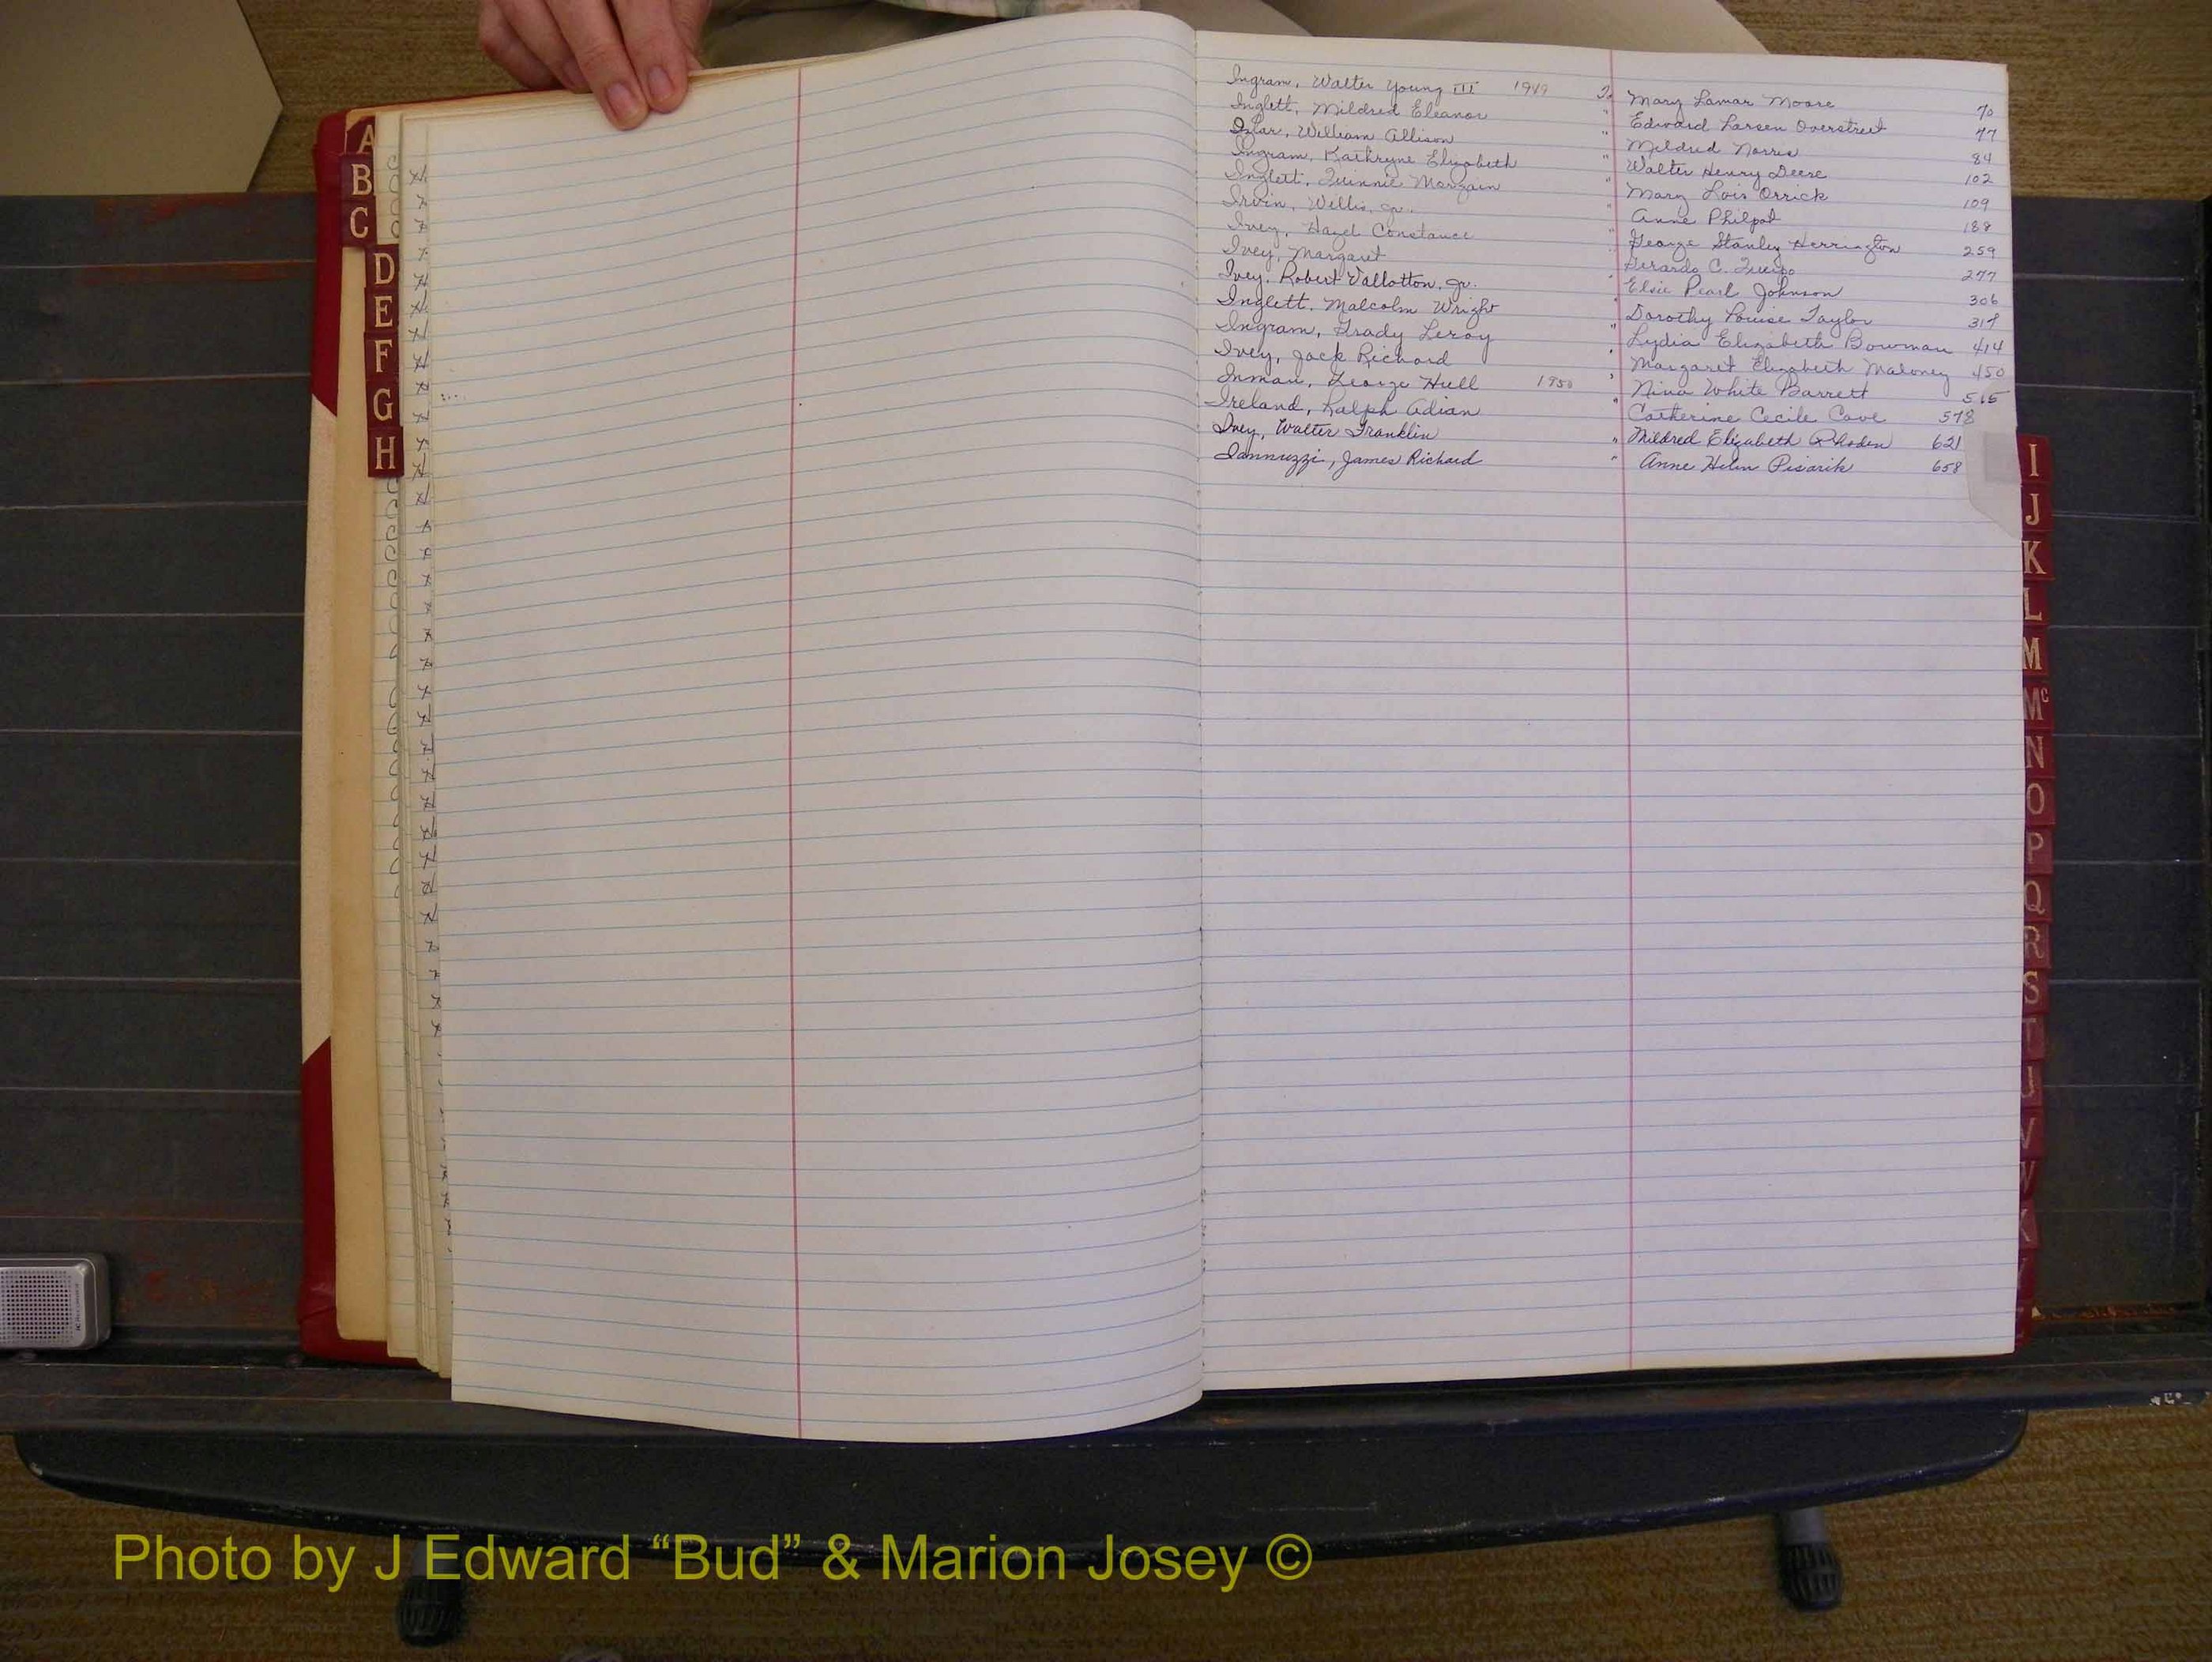 A
B
C
D
E
F
G
H
Ingram, Walter Young III 1949 To Mary Lamar Moore 70
Inglett, Mildred Eleanor " Edward Larsen Overstreet 77
Izlar, William Allison " Mildred Norris 84
Ingram, Kathryne Elizabeth " Walter Henry Deere 102
Inglett, Morgain " Mary Lois Orrick 109
Irvin, Willis, Jr. " Anne Philpot 188
Ivey, Hazel Constance " George Stanley Herrington 259
Ivey, Margaret " Gerardo C. 277
Ivey, Robert Vallotton, Jr. " Elsie Pearl Johnson 306
Inglett, Malcolm Wright " Dorothy Louise Taylor
Ingram, Grady Leroy " Lydia Elizabeth Bowman 414
Ivey, Jack Richard " Margaret Elizabeth Maloney 450
Inman, George Hull 1950 " Nina White Barrett 515
Ireland, Ralph Adian " Catherine Cecile Cave 578
Ivey, Walter Franklin " Mildred Elizabeth Rhoden 621
Iannuzzi, James Richard " Anne Helen Pisarik 658
I
J
K
L
M
Mc
N
O
P
Q
R
S
T
U
V
W
Photo by J Edward “Bud” & Marion Josey ©